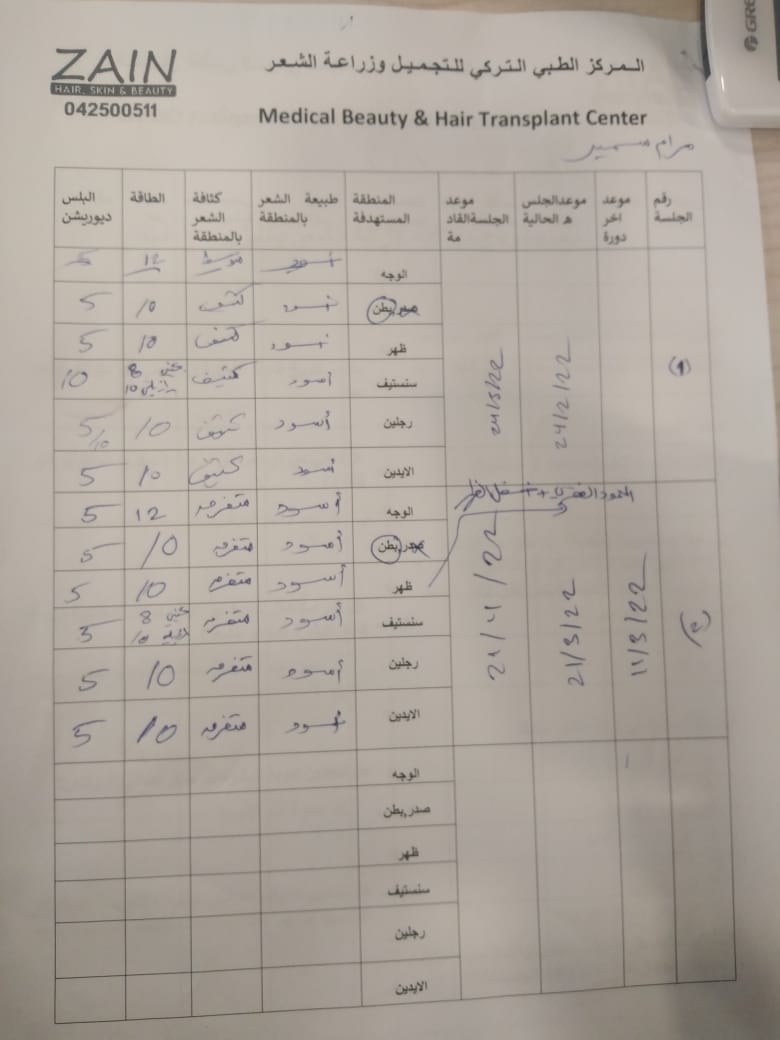 ZAIN
HAIR, SKIN & BEAUTY
042500511
المركز الطبي التركي للتجميل وزراعة الشعر
Medical Beauty & Hair Transplant Center
مرام سمير
رقم الجلسة موعد اخر دورة موعدالجلس ه الحالية موعد الجلسةالقاد مة المنطقة المستهدفة طبيعة الشعر بالمنطقة كثافة الشعر بالمنطقة الطاقة البلس ديوريشن
1 24/2/22 24/3/22
الوجه أسود متوسط 12 5
صدر,بطن أسود كثيف 10 5
ظهر أسود كثيف 10 5
سنستيف أسود كثيف 8 10 10
رجلين أسود كثيف 10 5/10
الايدين أسود كثيف 10 5
2 11/3/22 21/3/22 21/4/22
العمود الفقري + اسفل الظهر
الوجه أسود متفرقه 12 5
صدر,بطن أسود متفرقه 10 5
ظهر أسود متفرقه 10 5
سنستيف أسود متفرقه 8 10 5
رجلين أسود متفرقه 10 5
الايدين أسود متفرقه 10 5
الوجه
صدر,بطن
ظهر
سنستيف
رجلين
الايدين